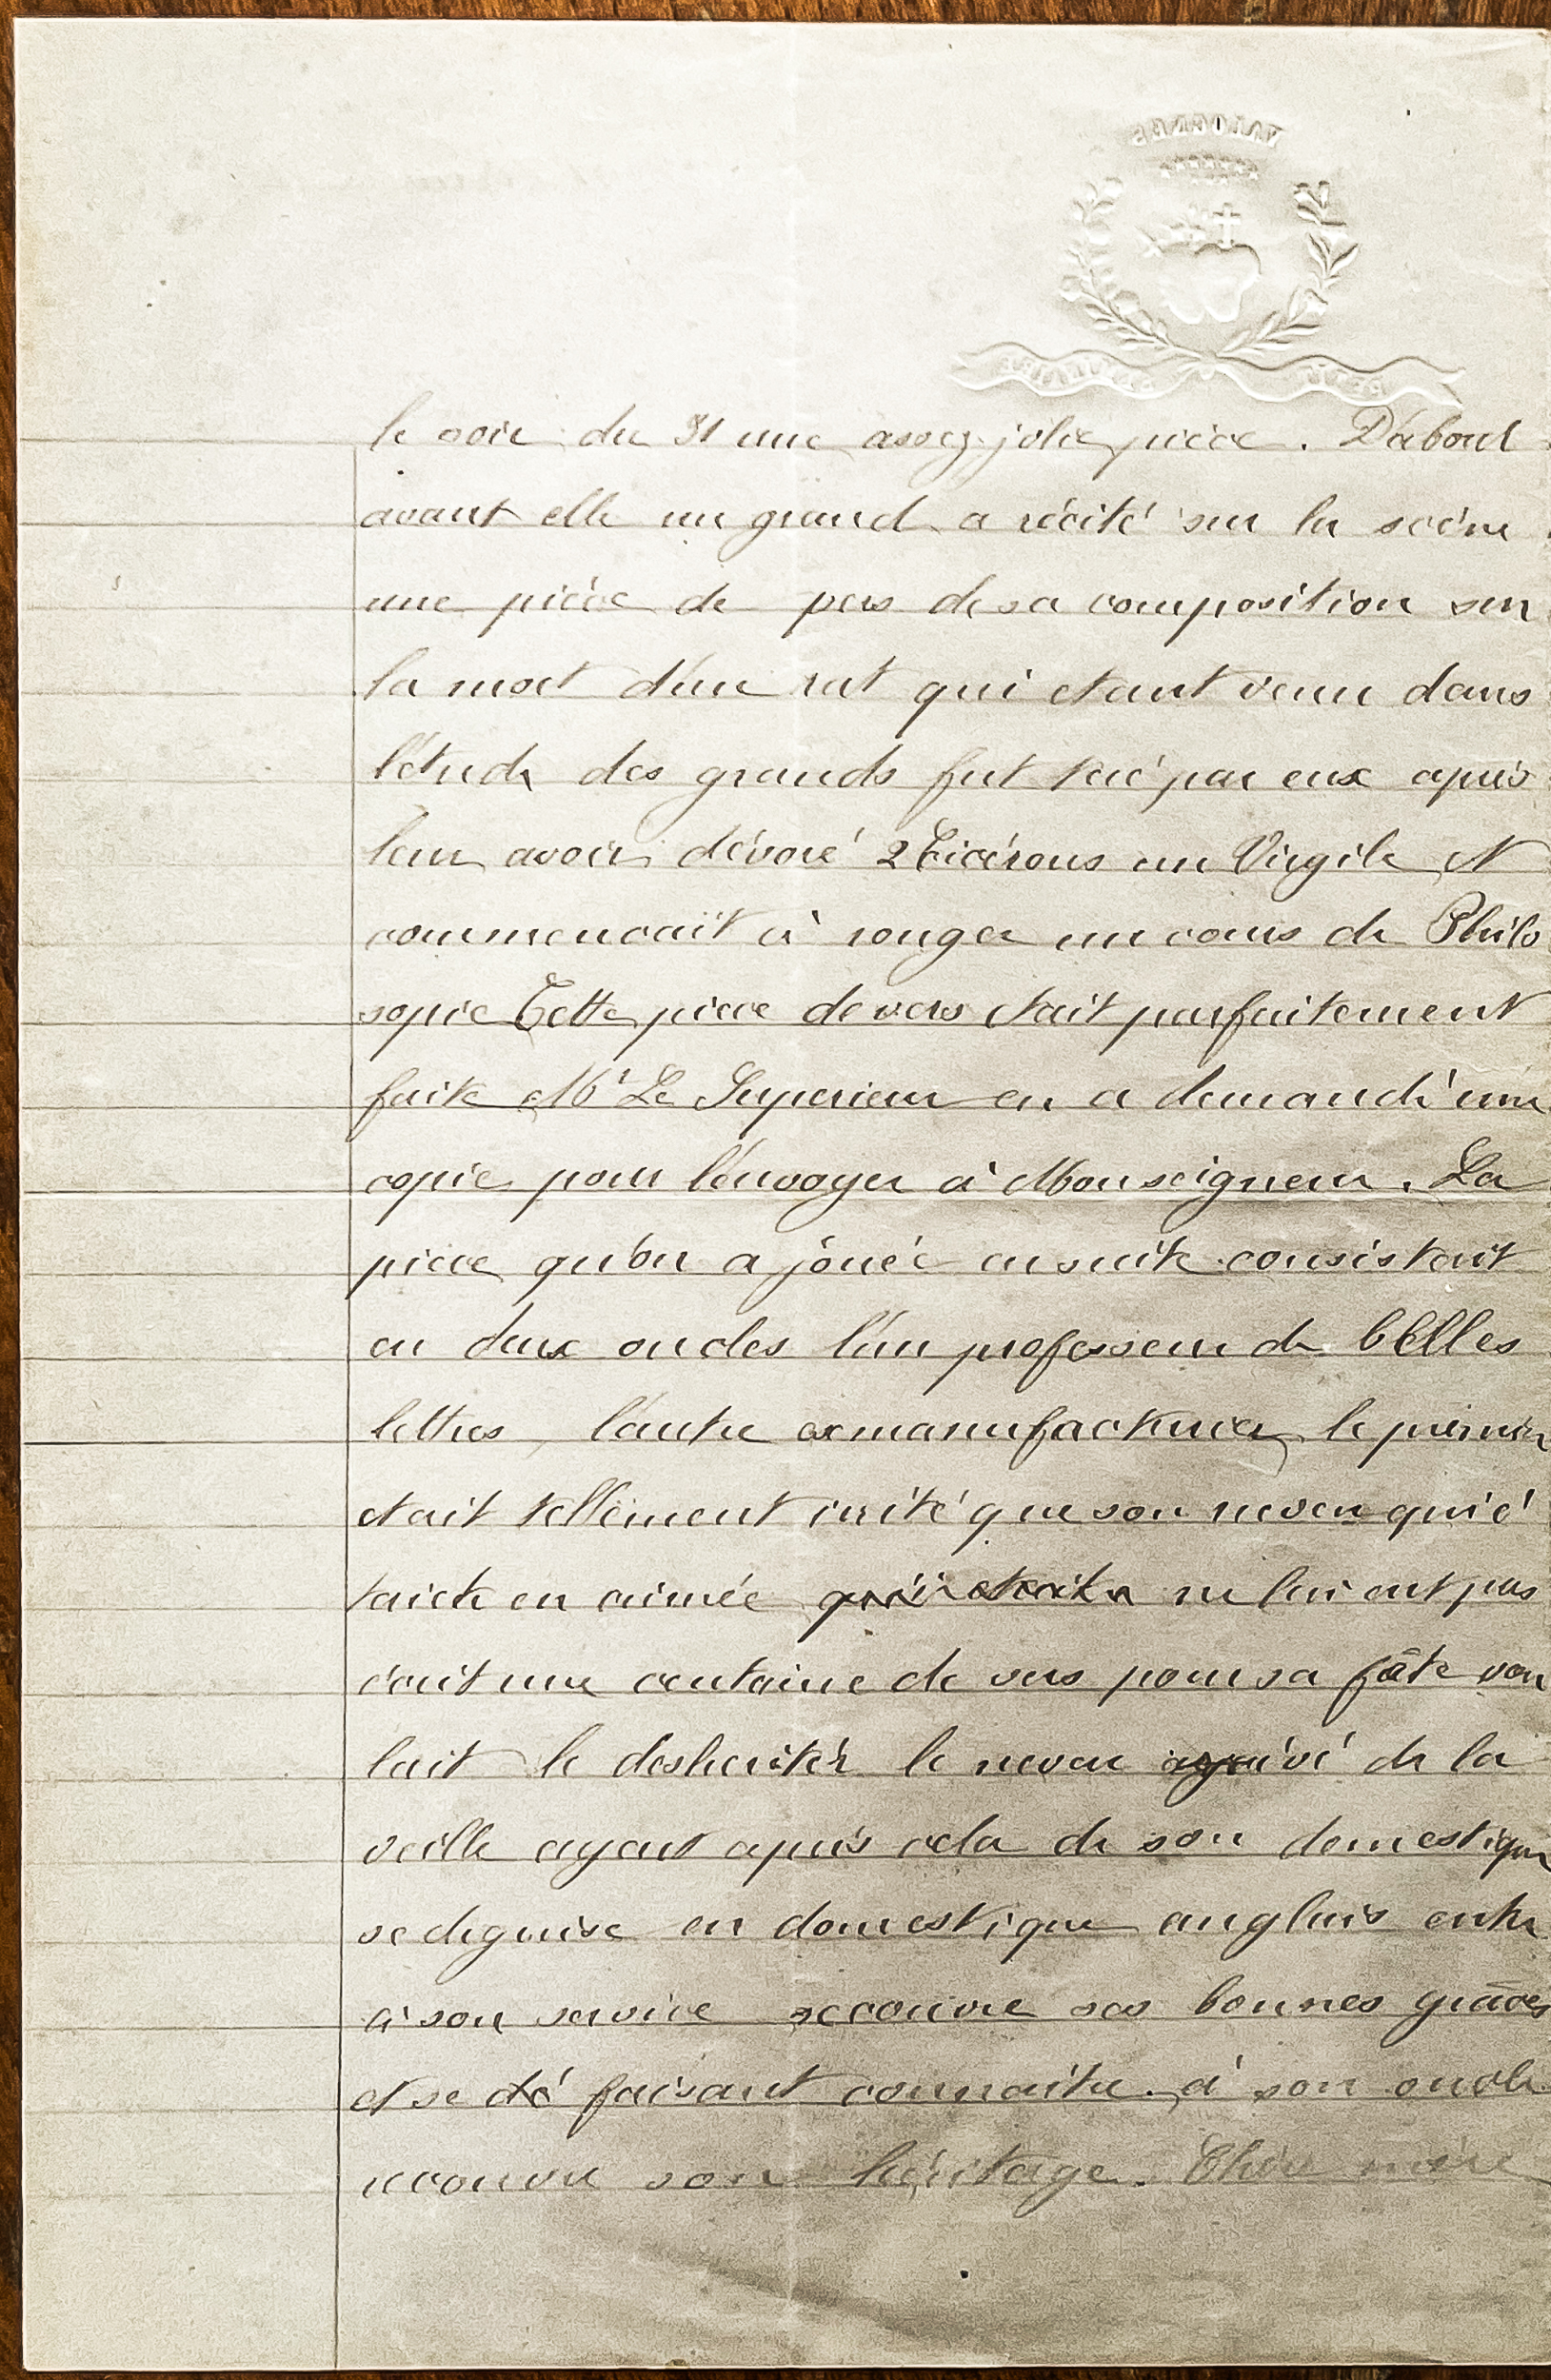 le soir du 31 une assez jolie pièce. D'abord
avant elle un grand a récité sur la scène
une pièce de vers de sa composition sur
la mort d'un rat qui etant venu dans
l'étude des grands fut tué par eux après
leur avoir dévoré 2 Cicérons un Virgile et
commencait à ronger un cours de Philo
sopie Cette piece de vers etait parfaitement
faite Mr Le Superieur en a demandé une
copie pour l'envoyer à Monseigneur. La
piece qu'on a jouée ensuite consistait
en deux oncles l'un professeur de belles
lettres, l'autre exmanufacturier le premier
etait tellement irrité que son neveu qui é
tait en aimée ne lui eut pas
écrit une centaine de vers pour sa fête vou
lait le desheriter le neveu arrivé de la
veille ayant apris cela de son domestique
se deguise en domestique anglais entre
à son service recouvre ses bonnes grâces
et se faisant connaitre à son oncle
recouvre son héritage. Chère mère